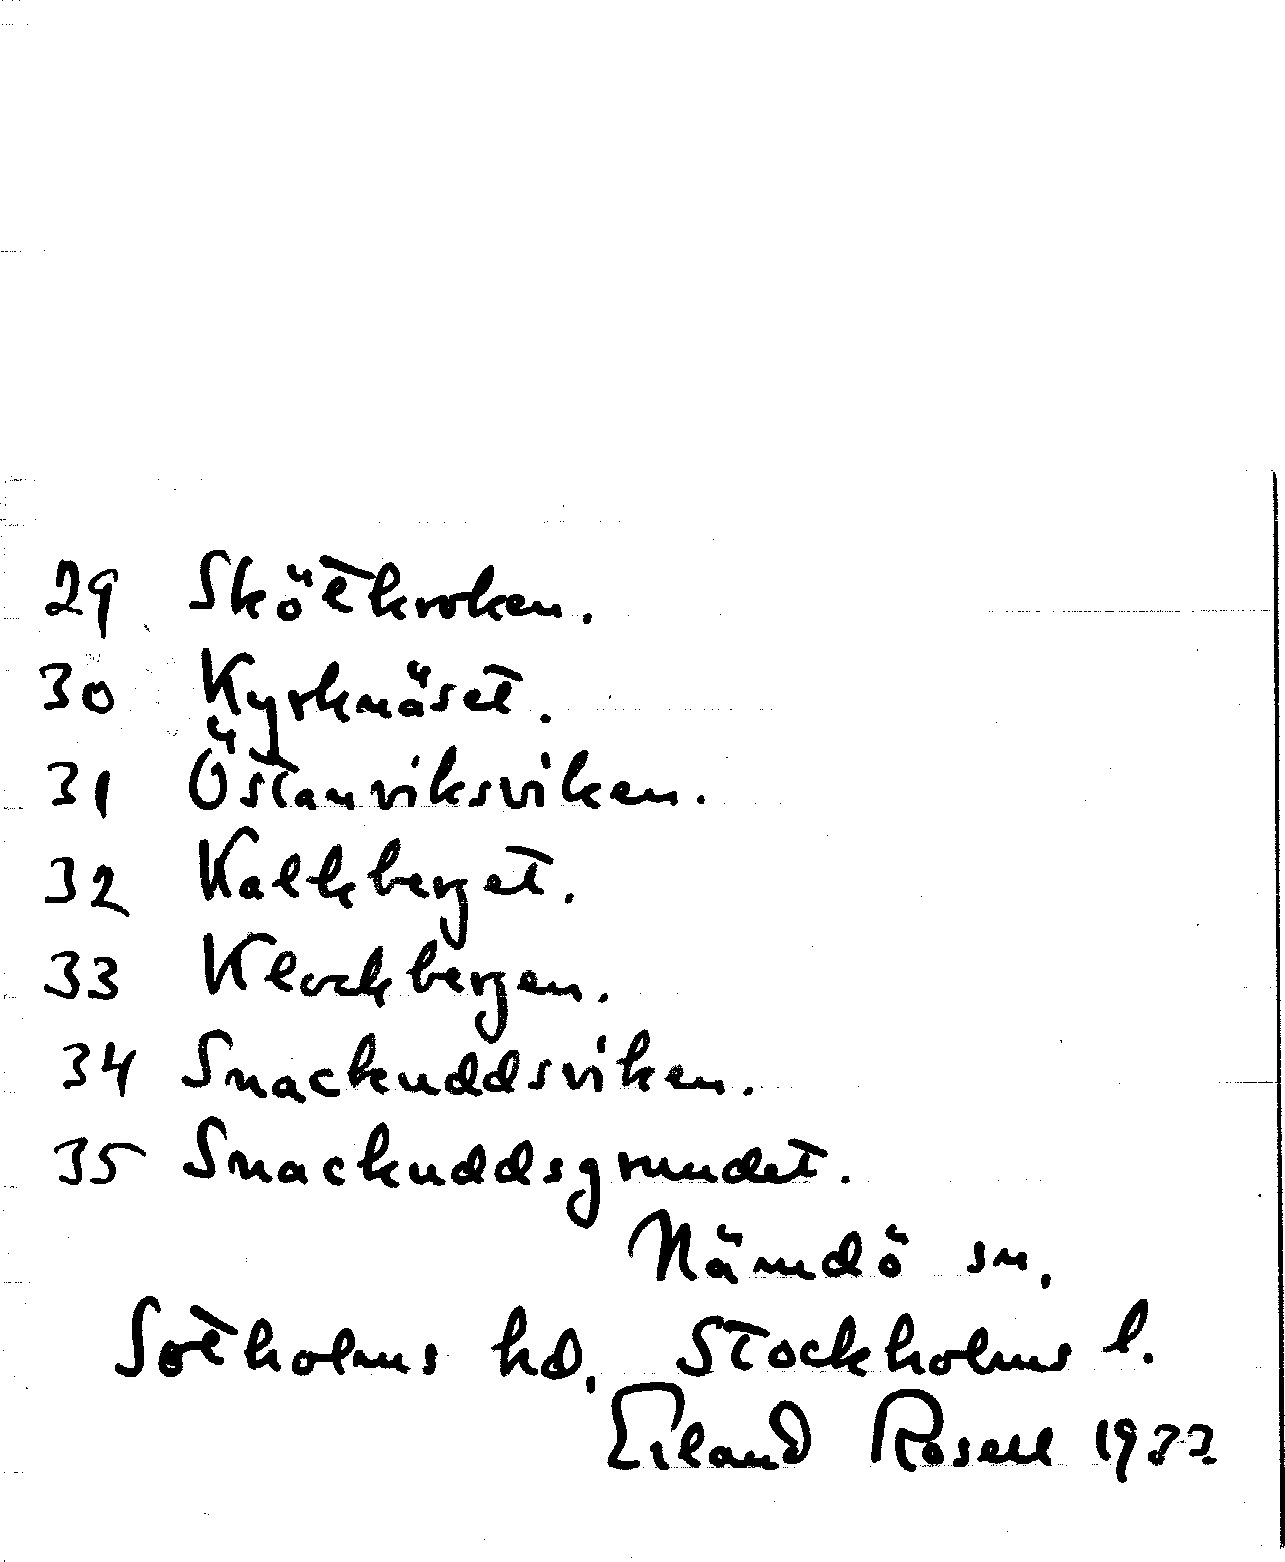 29 Skötkroken.
30 Kyrknäset.
31 Östanviksviken.
32 Kalkberget.
33 Klockbergen.
34 Snackuddsviken.
35 Snackuddsgrundet.
Nämdö sn.
Sotholms hd. Stockholms l.
Erland Rosell